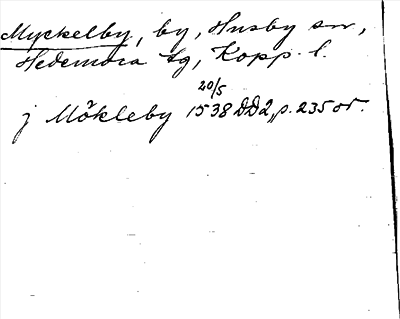 Myckelby, by, Husby sn,
Hedemora tg, Kopp. l.
20/5
j Mökleby 1538 DD2, p. 235 or.